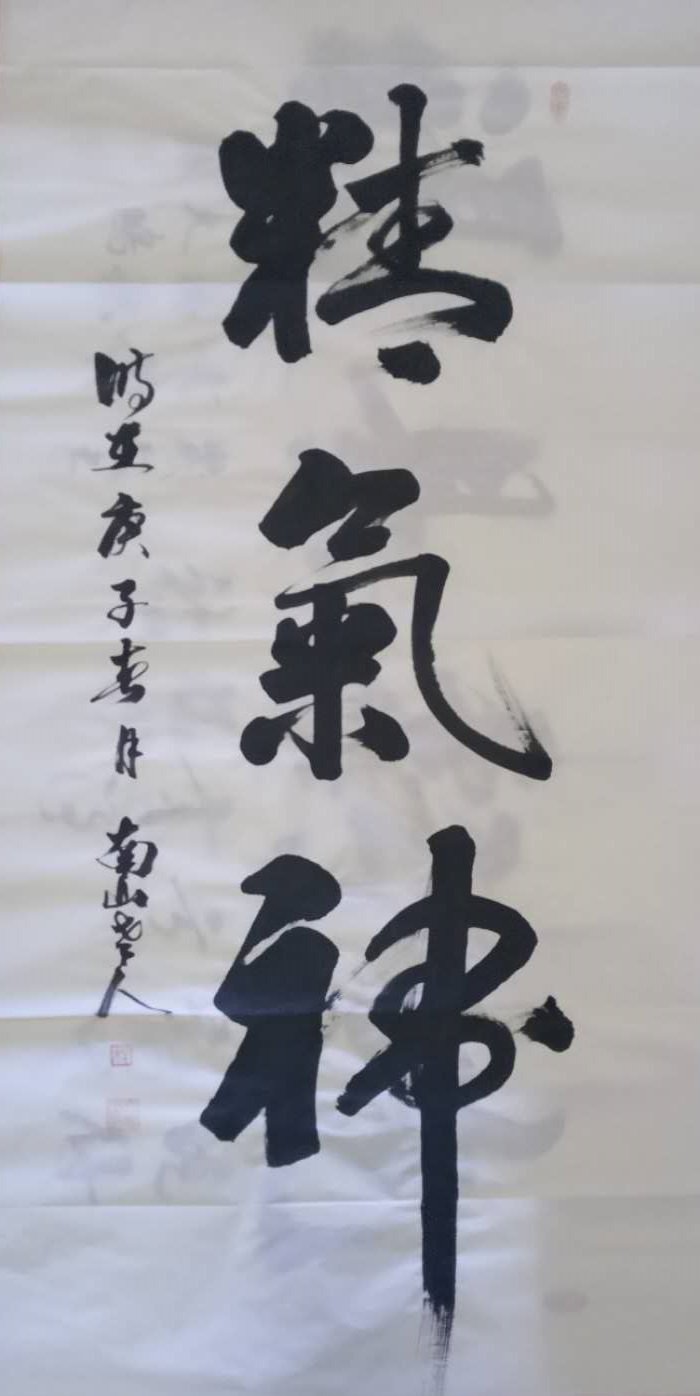 精氣神
時在庚子春月 南山老人